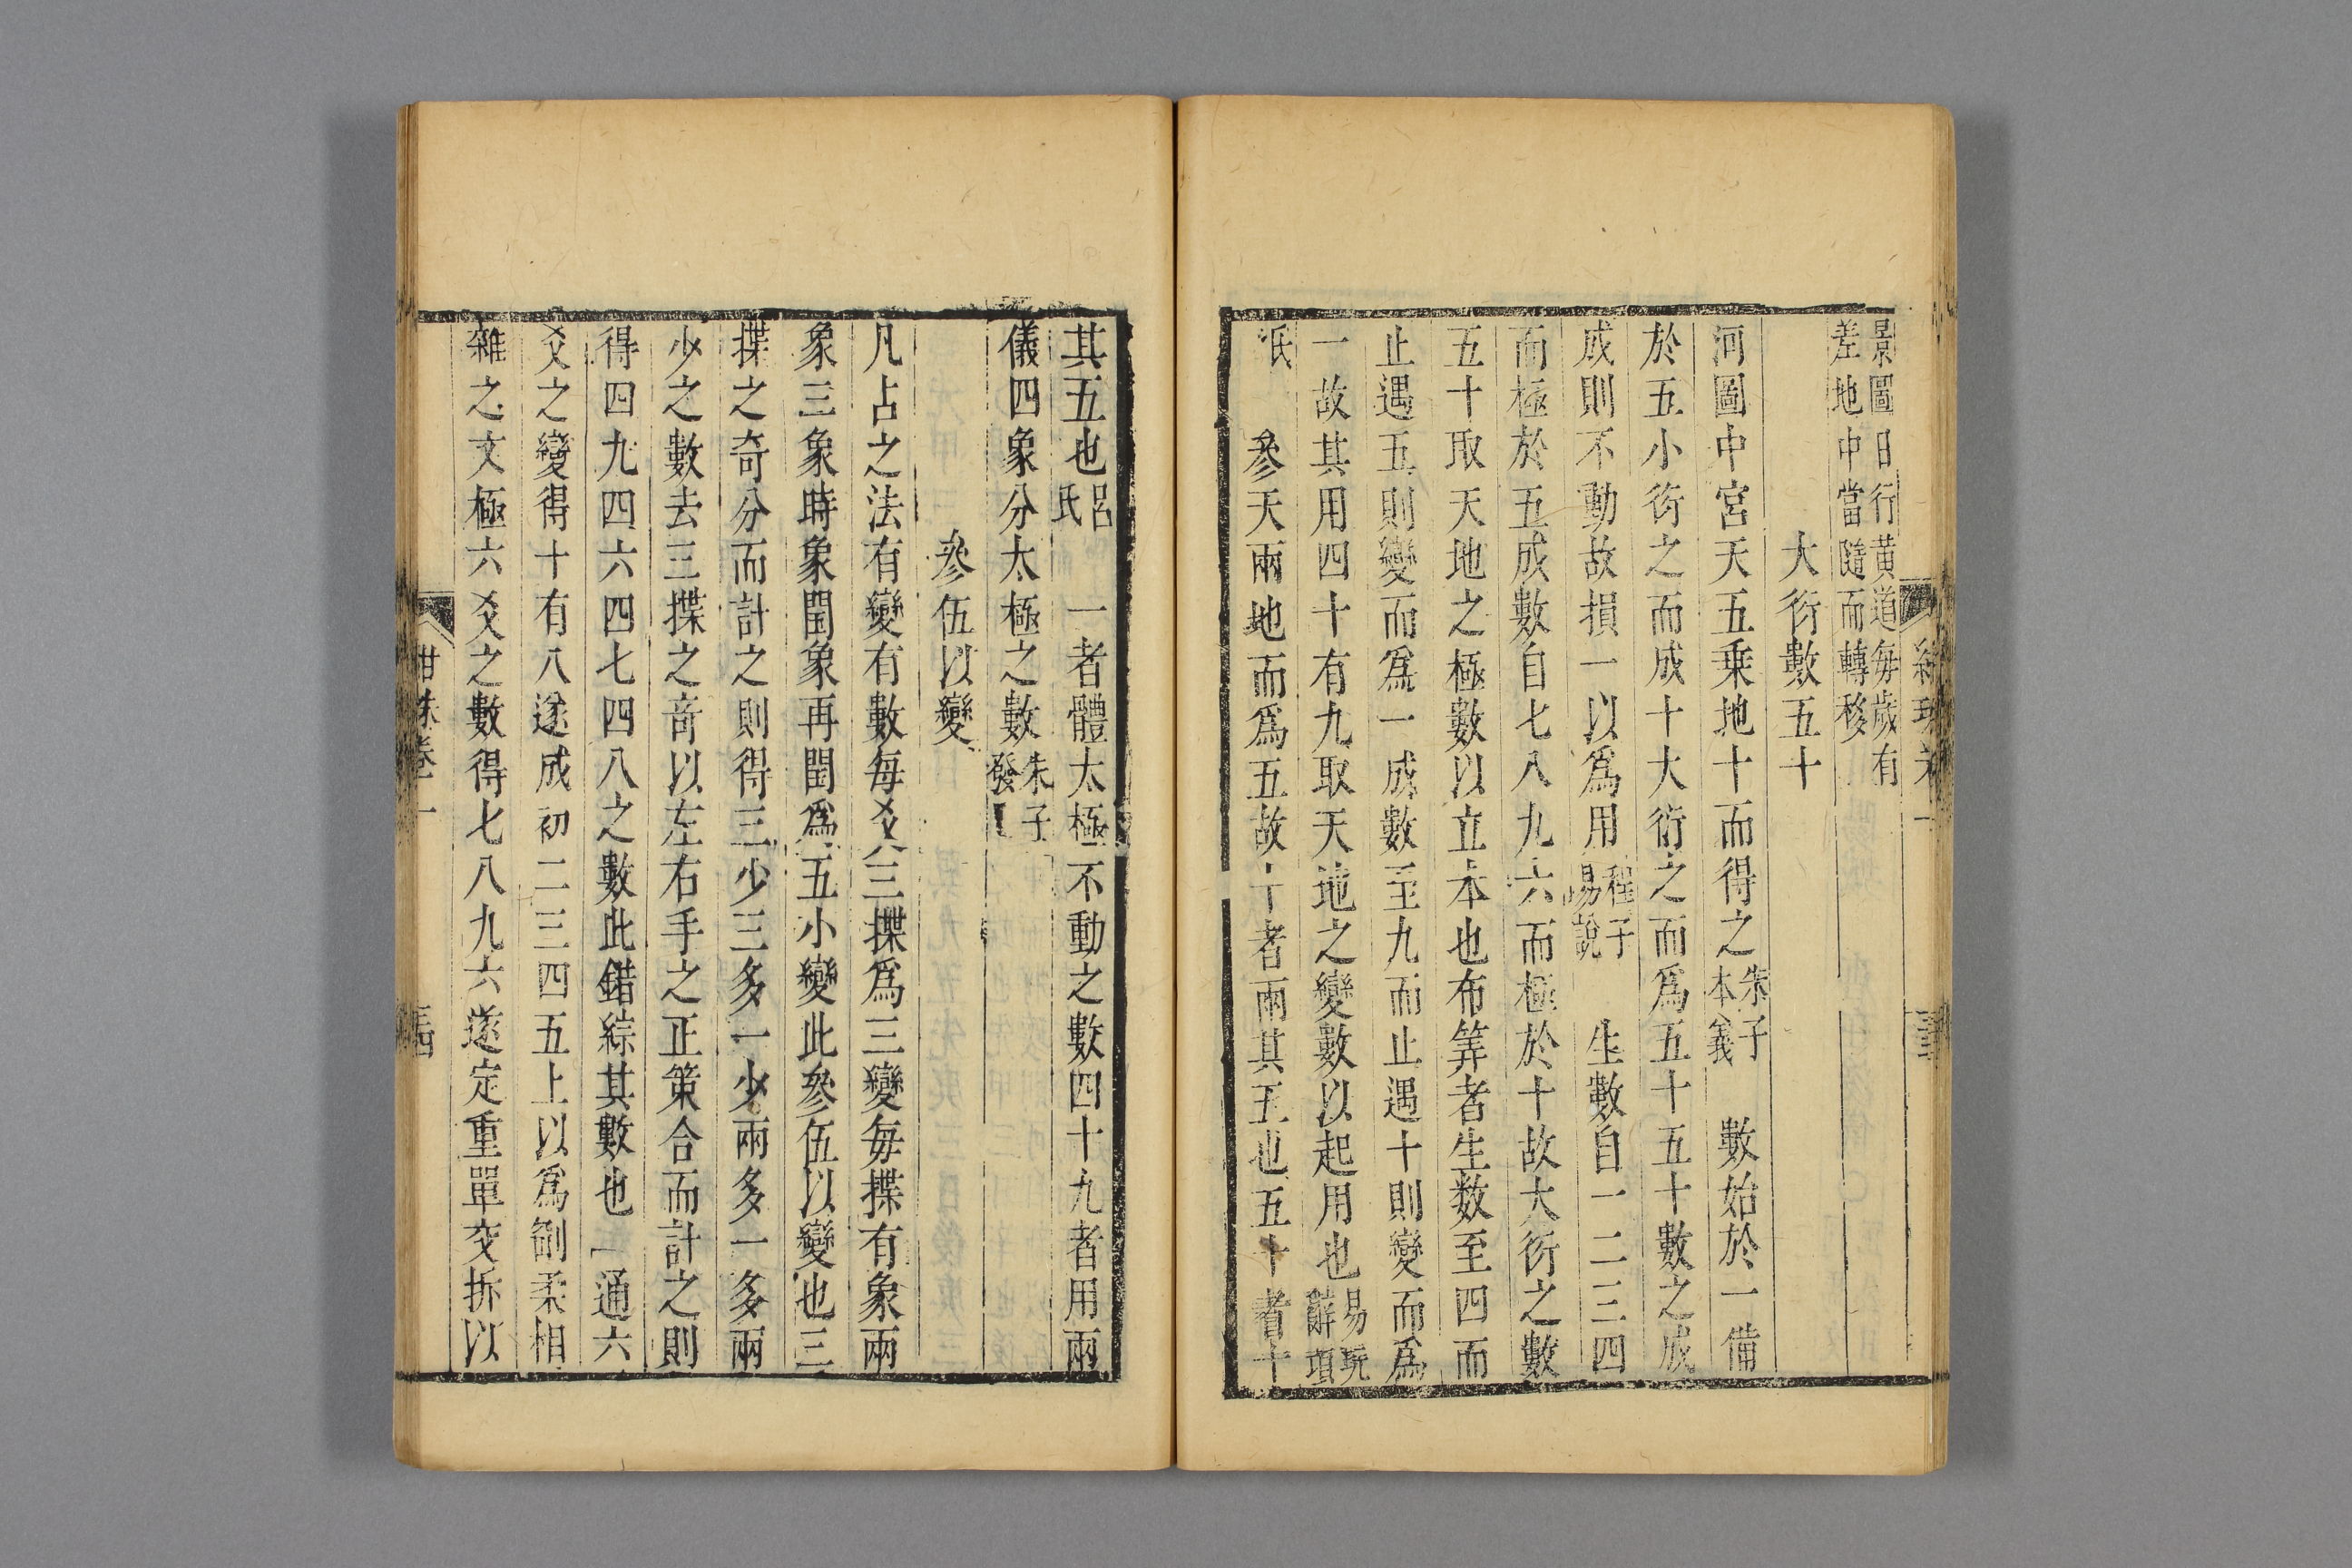 景圖日行黄道每歲有
差地中當隨而轉移
大衍數五十
河圖中宮天五乗地十而得之朱子本義 數始於一備
於五小衍之而成十大衍之而爲五十五十數之成
成則不動故損一以爲用程子易說 生數自一二三四
而極於五成數自七八九六而極於十故大衍之數
五十取天地之極數以立本也布筭者生数至四而
止遇五則變而爲一成數至九而止遇十則變而爲
一故其用四十有九取天地之變數以起用也易玩辭項
氏 參天兩地而爲五故十者兩其五也五十者十
其五也呂氏 一者體太極不動之數四十九者用兩
儀四象分太極之數朱子發
參伍以變
凡占之法有變有數每爻三揲爲三變每揲有象兩
象三象時象閏象再閏爲五小變此參伍以變也三
揲之奇分而計之則得三少三多一少兩多一多兩
少之數去三揲之竒以左右手之正策合而計之則
得四九四六四七四八之數此錯綜其數也 通六
爻之變得十有八遂成初二三四五上以爲剛柔相
雜之文極六爻之數得七八九六遂定重單交拆以
紺珠卷一